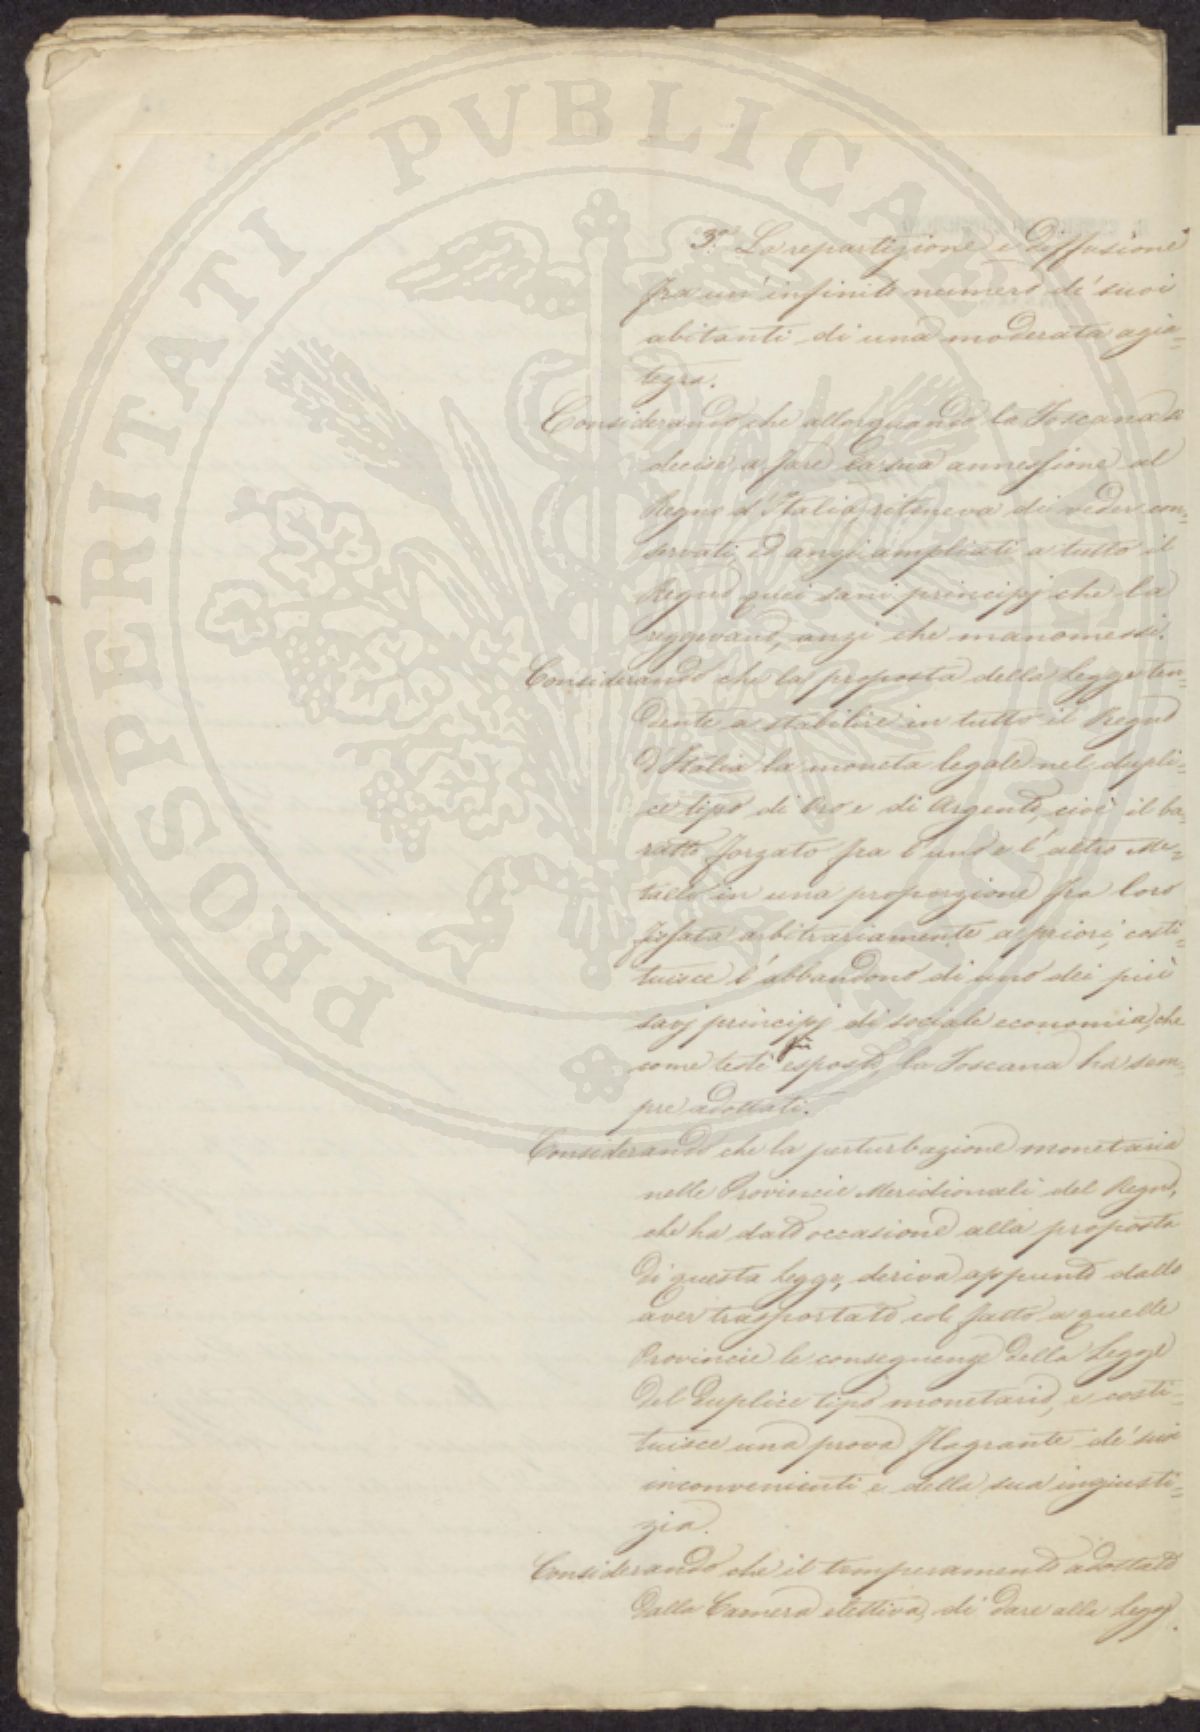 3.° La repartizione e diffusione
fra un'infinito numero de' suoi
abitanti di una moderata agia=
tezza.
Considerando che allorquando la Toscana si
decise a fare la sua annessione al
Regno d'Italia, riteneva di veder con=
servati, ed anzi ampliati a tutto il
Regno quei sani principj che la
reggevano, anzi che manomessi.
Considerando che la proposta della Legge ten=
dente a stabilire in tutto il Regno
d'Italia la moneta legale nel dupli=
ce tipo di Oro e di Argento, cioè il ba=
ratto forzato fra l'uno e l'altro Me=
tallo in una proporzione fra loro
fissata arbitrariamente a priori, costi=
tuisce l'abbandono di uno dei più
savj principj di sociale economia, che
come testè fù esposto, la Toscana ha sem=
pre adottati.
Considerando che la perturbazione monetaria
nelle Provincie Meridionali del Regno,
che ha dato occasione alla proposta
di questa Legge, deriva appunto dallo
aver trasportato col fatto a quelle
Provincie le conseguenze della Legge
del duplice tipo monetario, e costi=
tuisce una prova flagrante de' suoi
inconvenienti e della sua ingiusti=
zia.
Considerando che il temperamento adottato
dalla Camera elettiva, di dare alla Legge
PROSPERITATI PVBLICAE